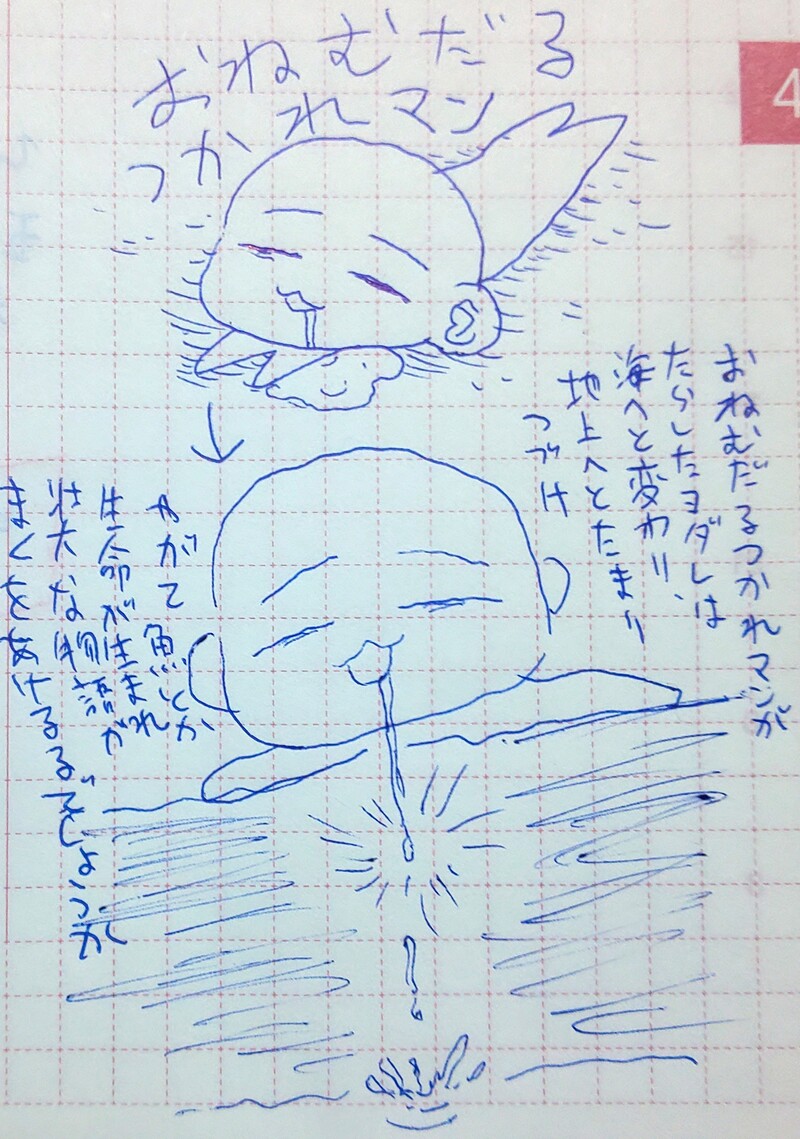 おねむだる
つかれマン
4
おねむだるつかれマンが
たらしたヨダレは
海へと変わり、
地上へとたまり
つづけ
やがて魚とか
生命が生まれ
壮大な物語が
まくをあけるるでしょうか